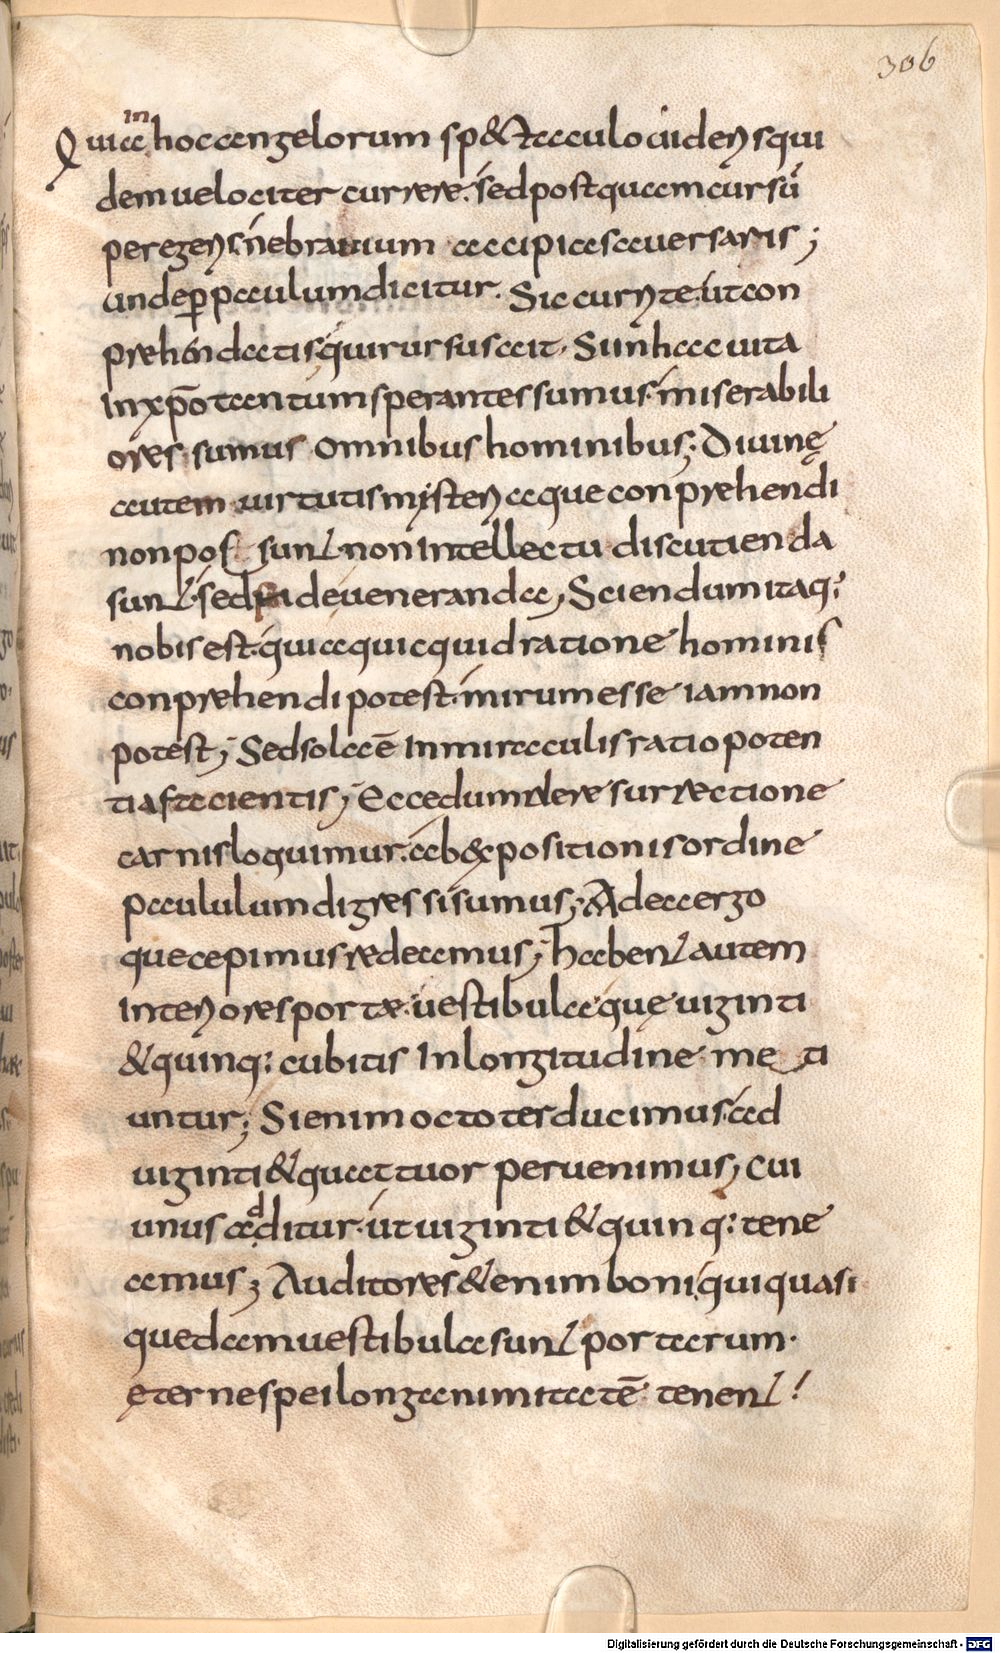 306
Quia in hoc angelorum sp&taculo uideris qui
dem uelociter currere. sed postquam cursū
peregeris. ne brauium accipias auersaris;
unde p̱ paulum dicitur. Sic currite. ut con
prehendatis. qui rursus ait. Si in hac uita
In xp̄o tantum sperantes sumus. miserabili
ores sumus omnibus hominibus; Diuinę
autem uirtutis mysteria que conprehendi
non possunt. non Intellectu discutienda
sunt. sed fide ueneranda; Sciendum itaq;
nobis est. quia quicquid ratione hominis
conprehendi potest. mirum esse iam non
potest; Sed sola ē In miraculis ratio poten
tia facientis; Ecce dum de resurrectione
carnis loquimur. ab &positionis ordine
paululum digressi sumus; Ad ea ergo
que cepimus redeamus; habent autem
Interiores portae. uestibula que uiginti
& quinq; cubitis In longitudine me ti
untur; Si enim octo ter ducimus. ad
uiginti & quattuor peruenimus; cui
unus additur. ut uiginti & quinq; tene
amus; Auditores & enim boni. qui quasi
quedam uestibula sunt portarum.
ęterne spei longanimitatē tenent!
Digitalisierung gefördert durch die Deutsche Forschungsgemeinschaft - DFG